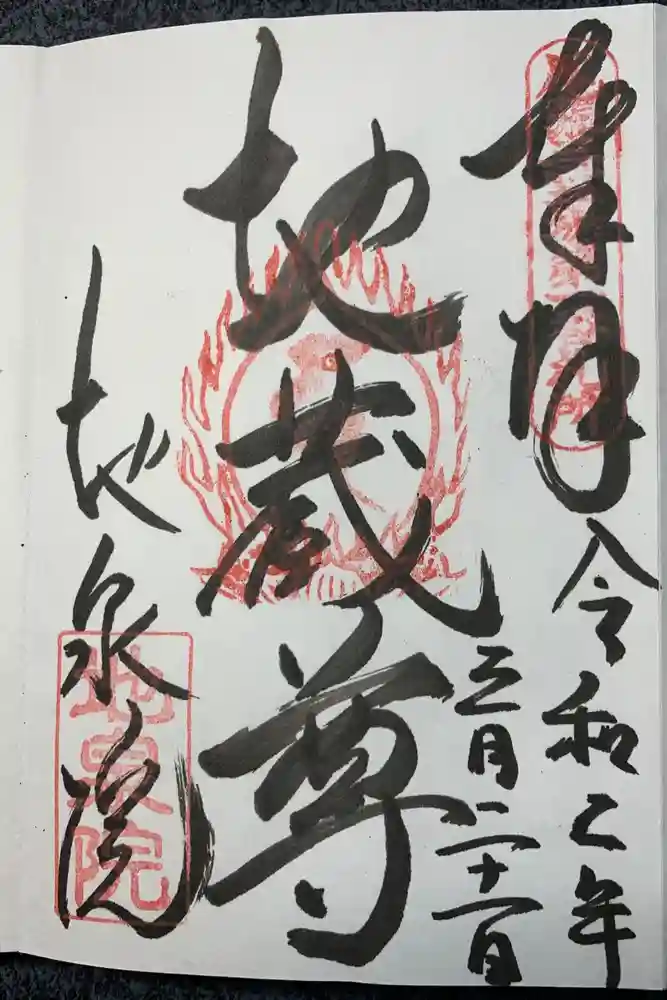 奉拝
令和二年
三月二十一日
地蔵尊
地泉院
地泉院